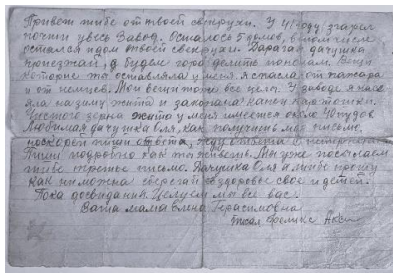 Привет тибе от твоей свекрухи. У 41 году згарел
почти увесь Завод. Осталось 5 домов, в том числе
остался и дом твоей свекрухи. Дарагая дачушка
приезжай, будем горе делить пополам. Вещи
которые ты оставляла у меня я спасла от пажара
и от немцев. Твои вещи тоже все целы. У заводе я насе
яла на зиму жита и закопала картошки.
Чистого зерна жита у меня имеется около 10 пудов
Любимая дачушка Валя, как получишь мае письмо,
поскорей пиши ответ, жду ответа с нетерпением
Пиши подробно как ты живеш. Мы уже посылаем
тибе третье письмо. Дачушка Валя я тибе прошу
как ни можна сберегай здоровье свое и детей.
Пока досвидания. Целуем мы все вас.
Ваша мама Елена Герасимовна
писал